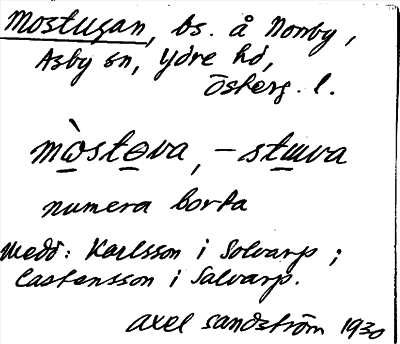 Mostugan, bs. å Norrby,
Asby sn, Ydre hd,
Österg. l.
mòstova, – stuva
numera borta
Medd: Karlsson i Solvarp;
Castensson i Salvarp.
Axel Sandström 1930